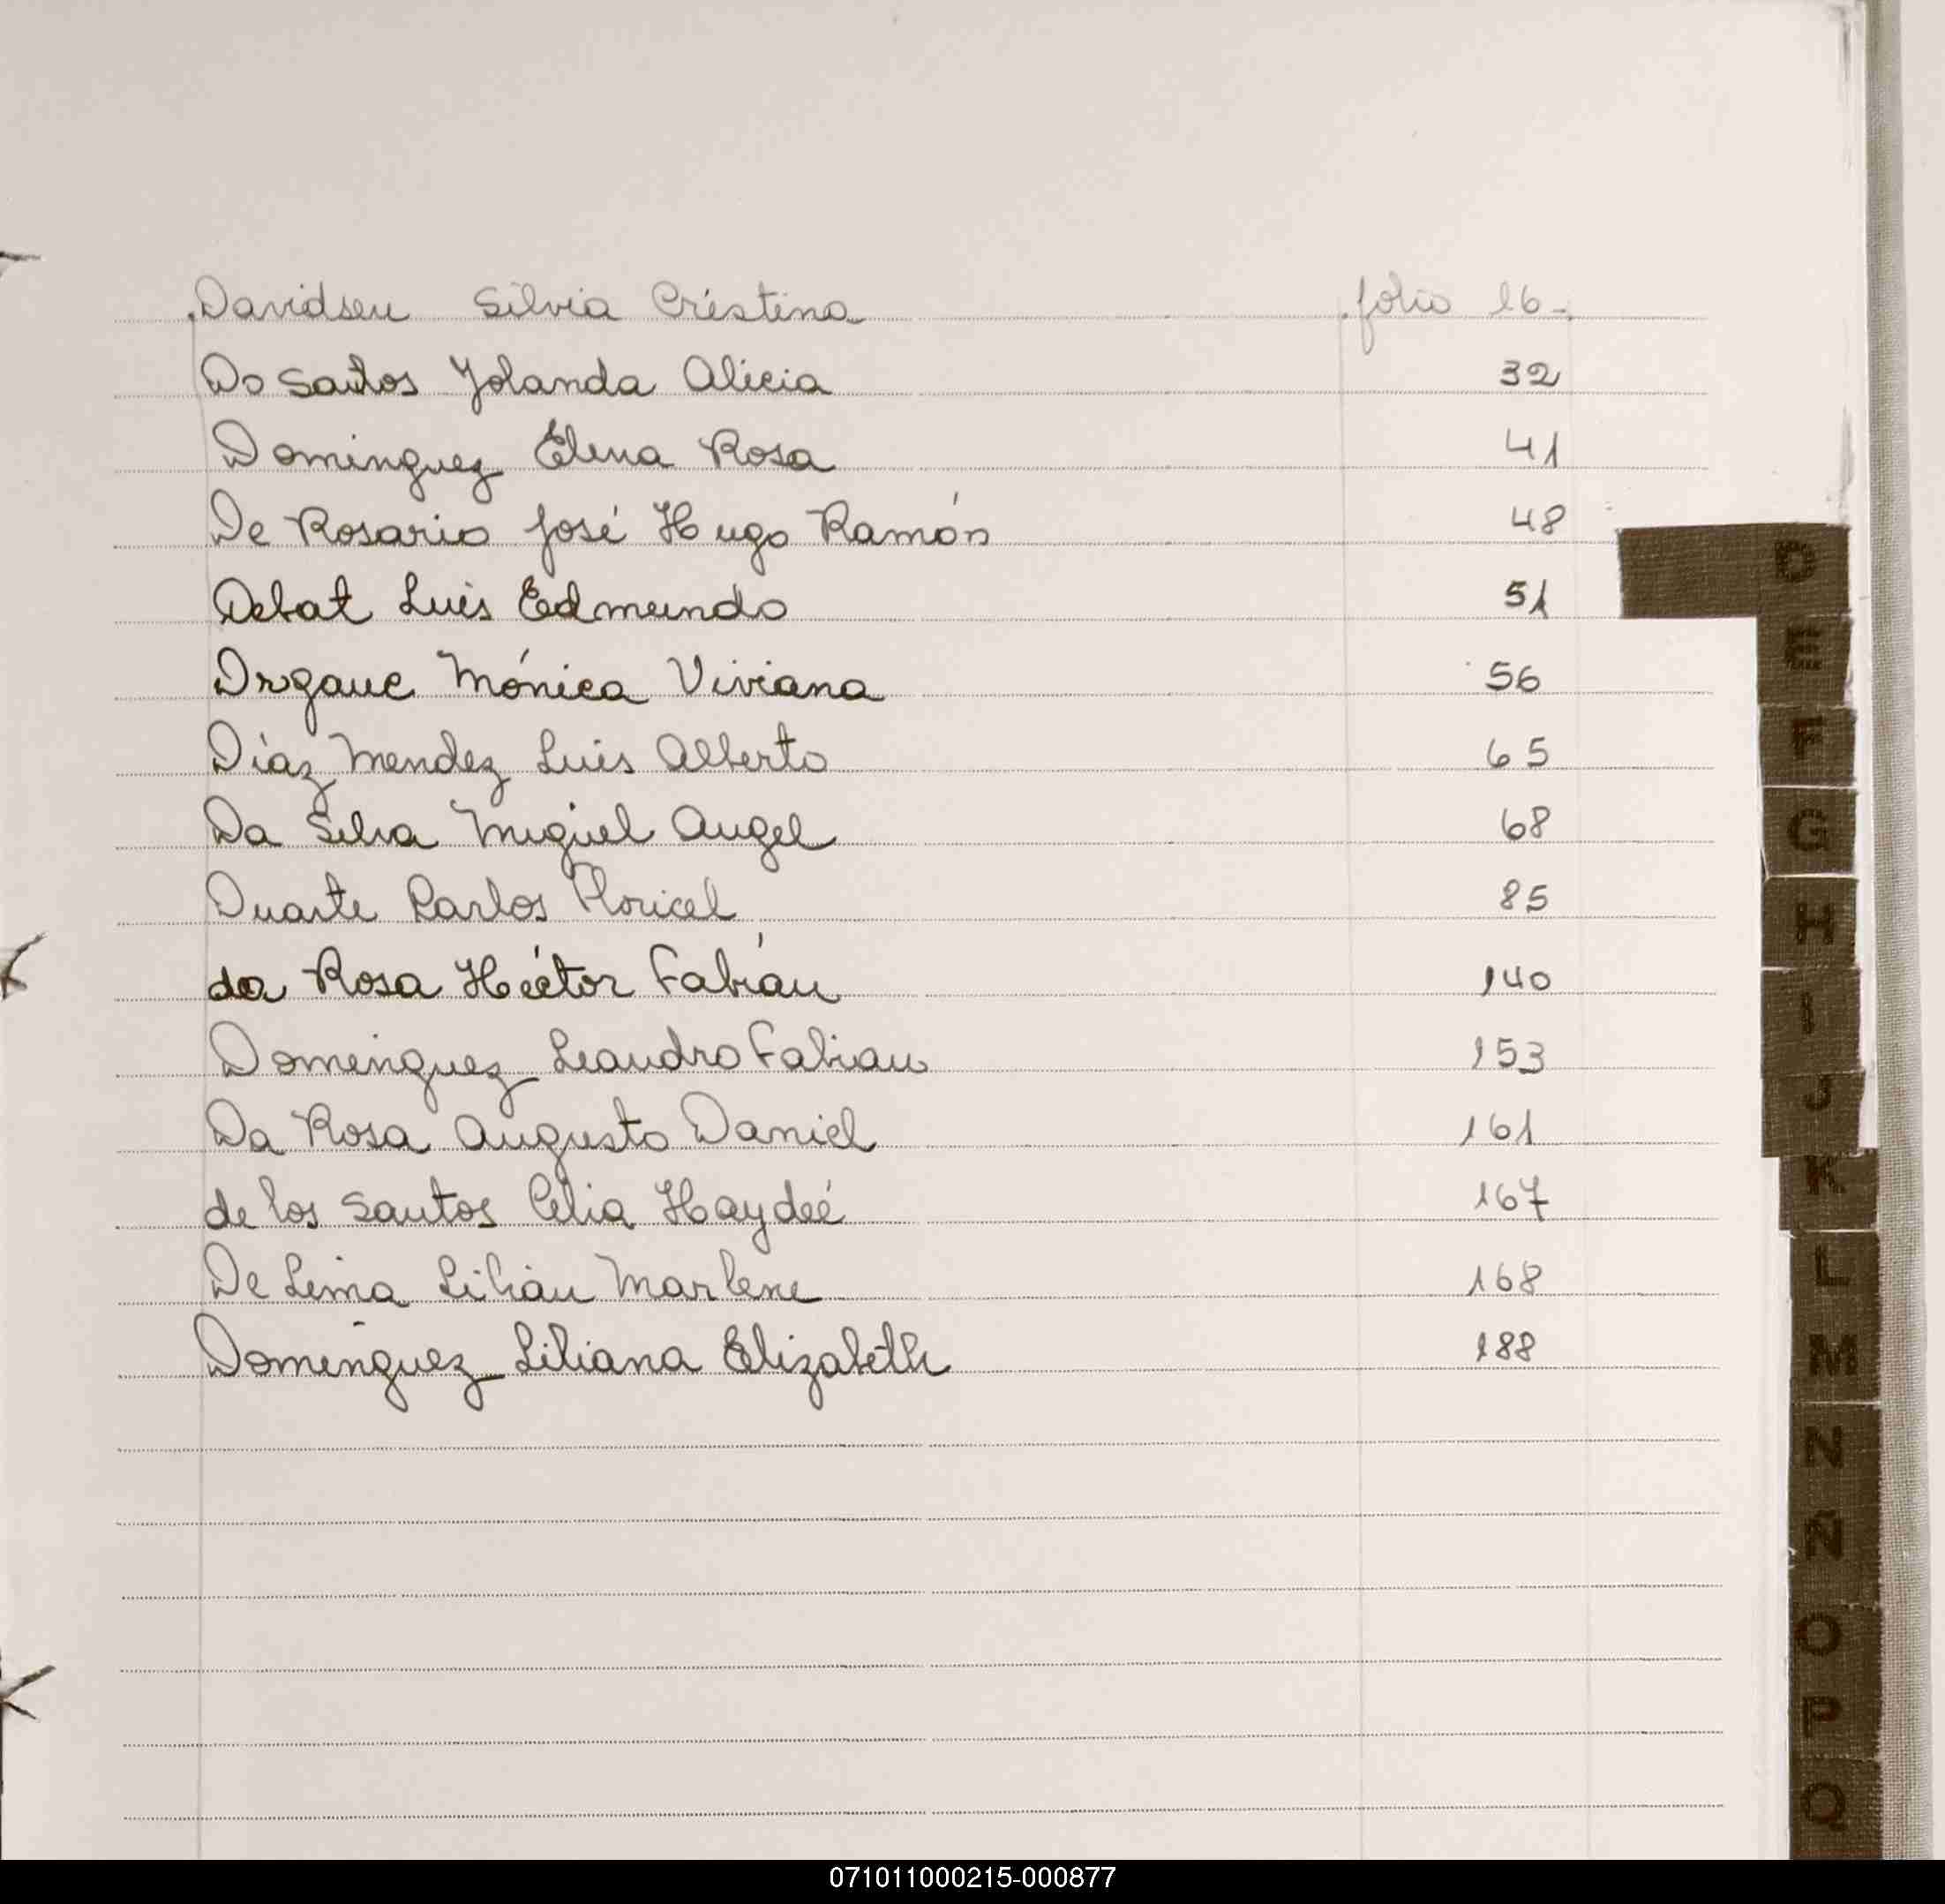 Davidsen Silvia Cristina folio 16-
Do Santos Yolanda Alicia 32
Dominguez Elena Rosa 41
De Rosario José Hugo Ramón 48
Debat Luis Edmundo 51
Mónica Viviana 56
Díaz Mendez Luis Alberto 65
Da Silva Miguel Angel 68
Duarte Carlos Floricel 85
da Rosa Héctor Fabián 140
Dominguez Leandro Fabian 153
Da Rosa Augusto Daniel 161
de los Santos Celia Haydeé 167
De Lima Lilián Marlene 168
Dominguez Liliana Elizabeth 188
D
E
F
G
H
I
J
K
L
M
N
Ñ
O
P
Q
071011000215-000877